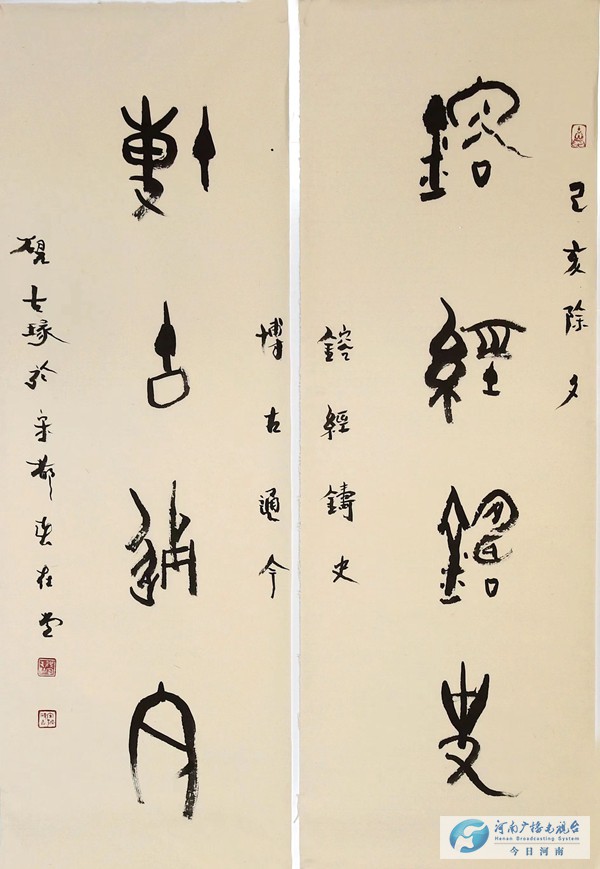 己亥除夕
鎔經鑄史
鎔經鑄史
博古通今
博古通今
硯古於宋都在堂
河南广播电视台
Henan Broadcasting System
今日河南